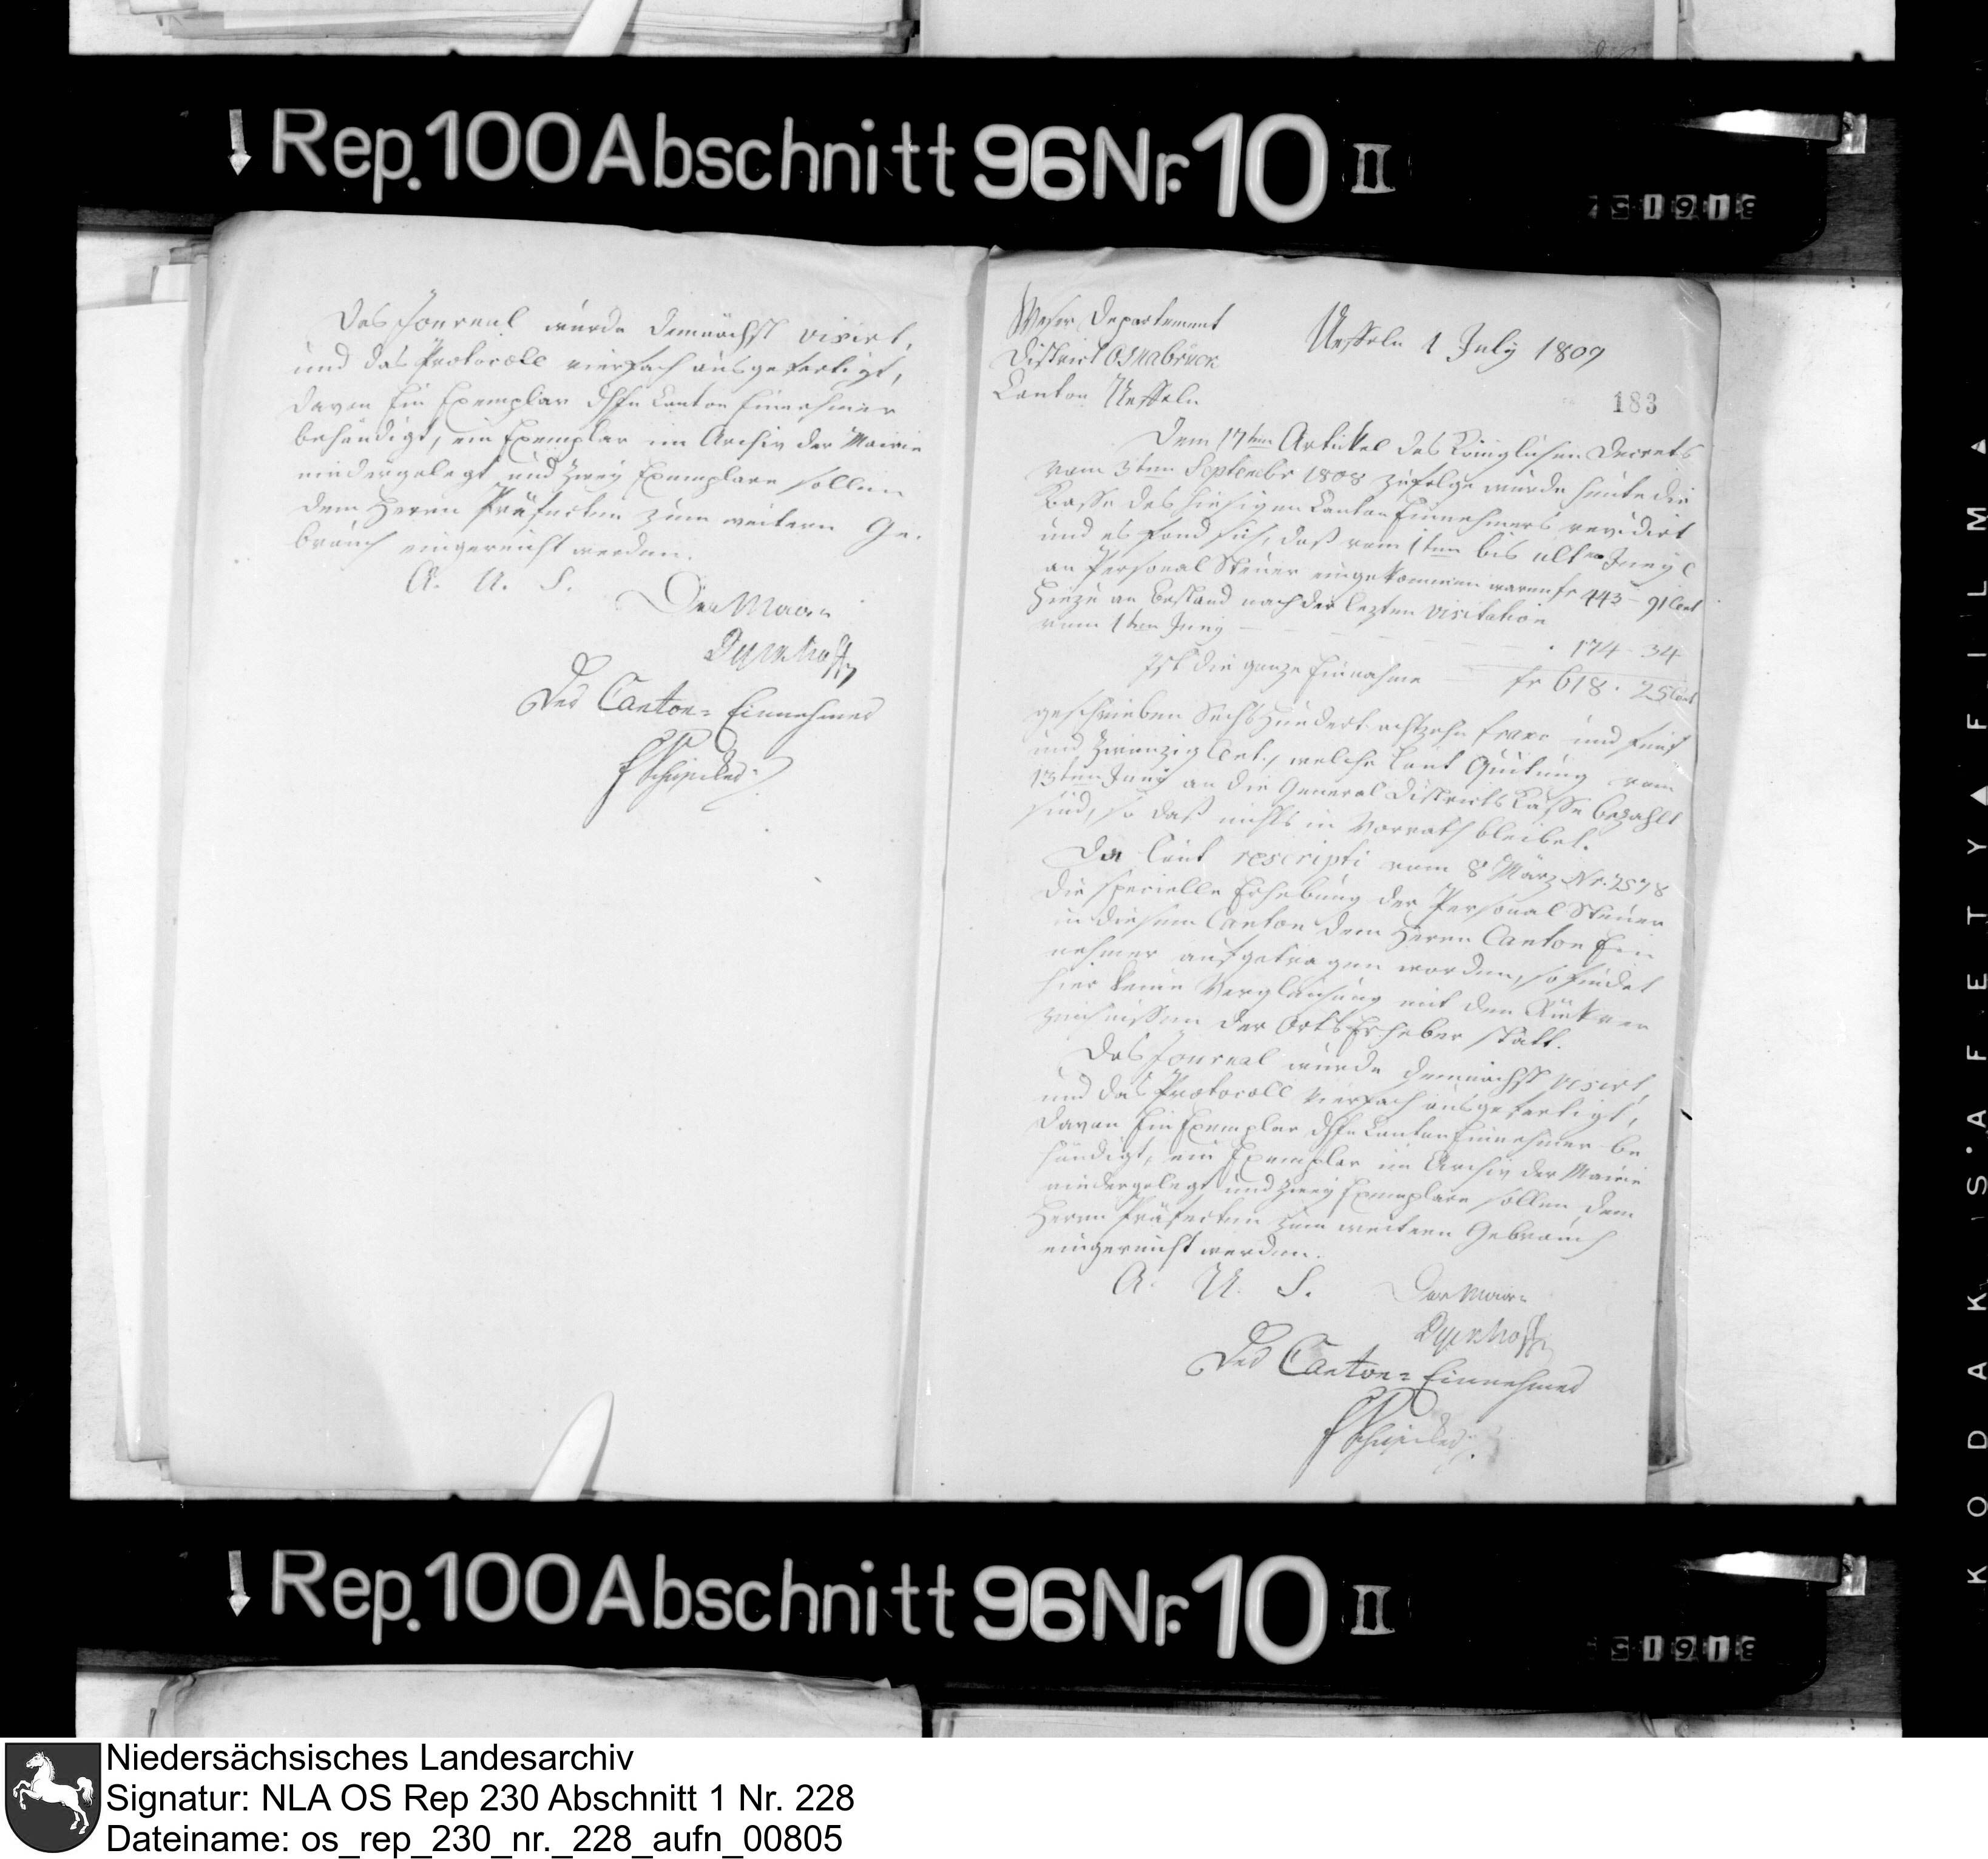 Rep. 100 Abschnitt 96 Nr. 10 II
51918
Das Journal wurde demnächst visirt,
und das Protocoll vierfach ausgefertigt,
davon Ein Exemplar dem Canton Einnehmer
behändigt, ein Exemplar im Archiv der Mairie
niedergelegt und zwey Exemplare sollen
dem Herrn Präfecten zum weitern Ge-
brauch eingereicht werden.
A. U. S.
Der Maire
Der Canton=Einnehmer
Weser Departement
District Osnabrück
Canton Ueffeln
Ueffeln 1 July 1809
183
Dem 17ten Artickel des Königlichen Decrets
vom 3ten Septembr 1808 zufolge wurde heute die
Kasse des hiesigen Canton Einnehmers revidirt
und es fand sich, daß vom 1ten bis ult Juny c
an Personal Steuer eingekommen waren fr 443 - 91 Cent
Hiezu an Bestand nach der lezten Visitation
vom 1ten Juny - - - - 174 - 34
Ist die ganze Einnahme - fr 618 . 25 Cent
geschrieben Sechshundert achtzehn franc und fünf
und zwanzig Cent., welche laut Quitung vom
13ten Juny an die General Districts Kasse bezahlt
sind, so daß nichts in Vorrath bleibet.
Da laut rescripti vom 8 März Nr. 2578
die specielle Erhebung der Personal Steuer
in diesem Canton dem Herrn Canton Ein
nehmer aufgetragen worden, so findet
hier keine Vergleichung mit den
der Orts Erheber statt.
Das Journal wurde demnächst visirt,
und das Protocoll vierfach ausgefertigt,
davon Ein Exemplar dem Canton Einnehmer be
händigt, ein Exemplar im Archiv der Mairie
niedergelegt und zwey Exemplare sollen dem
Herrn Präfecten zum weitern Gebrauch
eingereicht werden.
A. U. S.
Der Maire
Der Canton=Einnehmer
Rep. 100 Abschnitt 96 Nr. 10 II
51918
KODAK S'AFETY FILM
Niedersächsisches Landesarchiv
Signatur: NLA OS Rep 230 Abschnitt 1 Nr. 228
Dateiname: os_rep_230_nr._228_aufn_00805